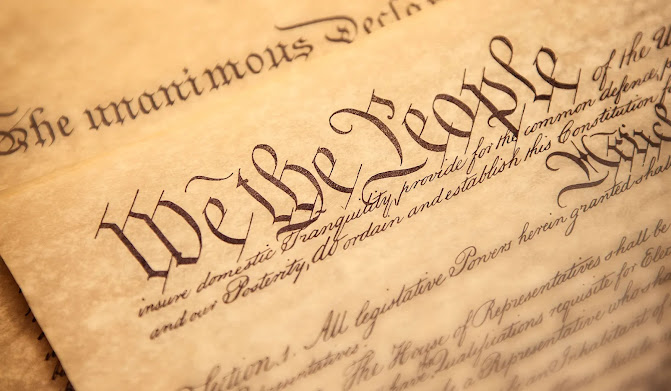 The unanimous Decla
We the People of the U
insure domestic Tranquility, provide for the common defence,
and our Posterity, do ordain and establish this Constitution
Section 1. All legislative Powers herein granted shall
Representatives.
The House of Representatives shall be
Qualifications requisite for Elec
a Representative who sha
an Inhabitant of